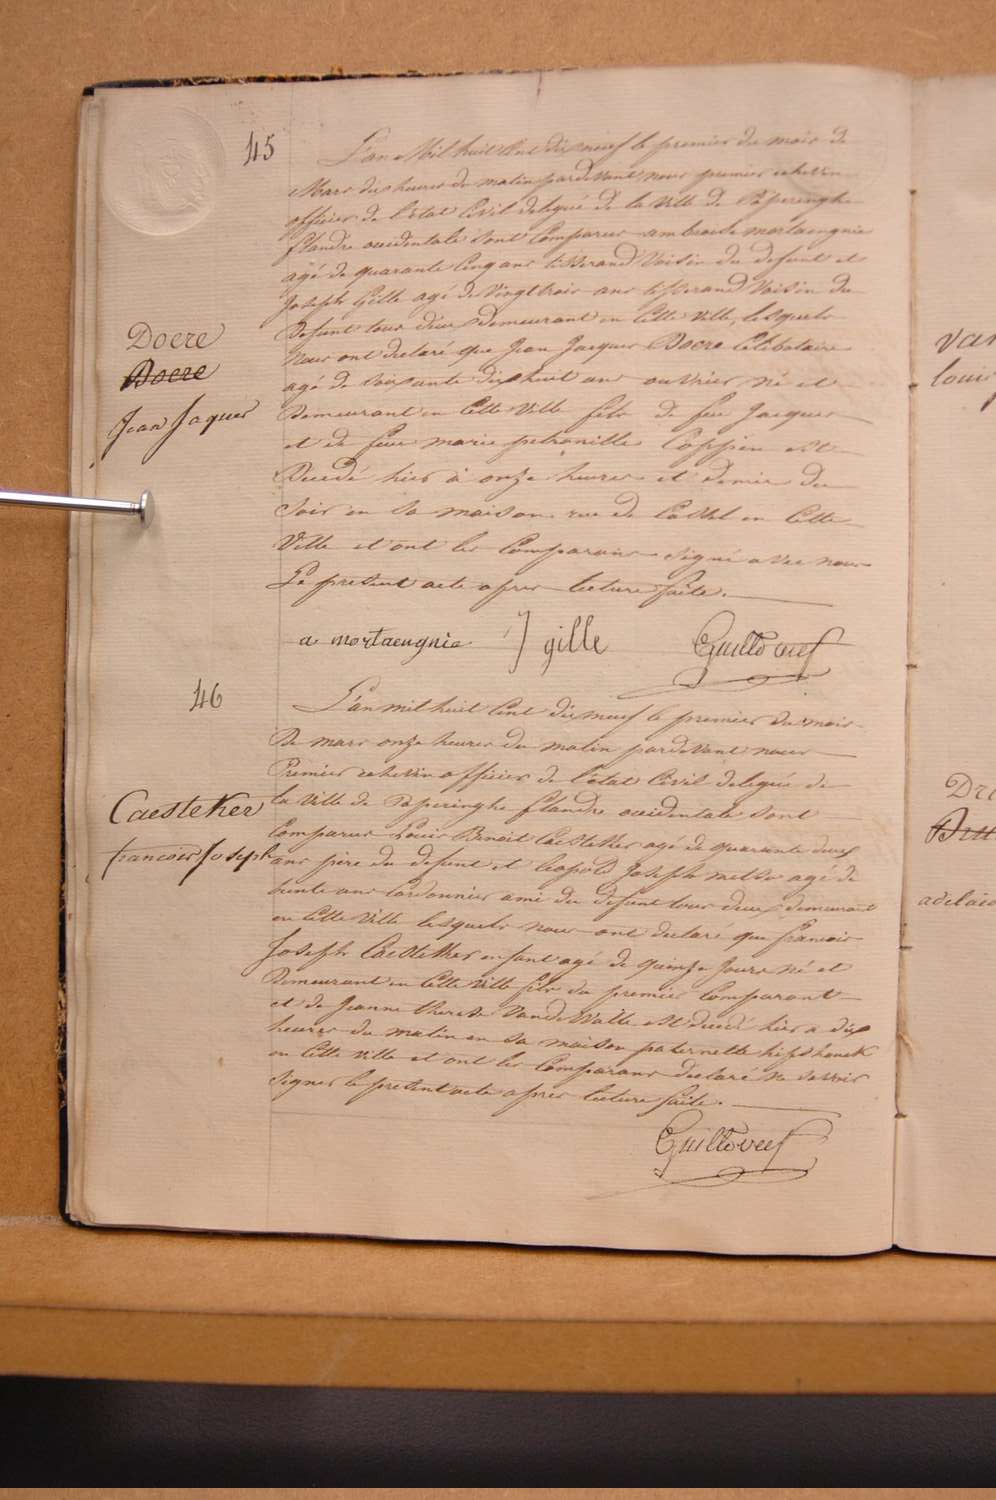 45
L'an Mil huit Cent dix neuf le premier du mois de
Mars dix heures du matin pardevant nous premier echevin
officier de l'état Civil delegué de la Ville de Poperinghe
flandre occidentale sont Comparus ambroise mortaengnie
agé de quarante Cinq ans tisserand Voisin du defunt et
Joseph Gille agé de Vingt trois ans tisserand Voisin du
Defunt tous deux Demeurant en Cette Ville lesquels
Nous ont declaré que Jean Jacques Docre Celibataire
agé de soixante dix huit ans ouvrier né et
Demeurant en Cette Ville fils de feu Jacques
et de feue marie petronille Coppin est
Decedé hier à onze heures et demie du
Soir en sa maison rue de Cassel en Cette
Ville et ont les Comparans signé avec nous
Le present acte apres lecture faite.
Docre
Docre
Jean Jaques
a mortaengnie J gille Guillovaes
46
L'an mil huit Cent dix neuf le premier du mois
De mars onze heures du matin pardevant nous
Premier echevin officier de l'état Civil delegué de
la Ville de Poperinghe flandre occidentale sont
Comparus Louis Benoit Caesteker agé de quarante deux
ans père du defunt et Leopold Joseph agé de
trente ans Cordonnier ami du defunt tous deux demeurant
en Cette Ville lesquels nous ont declaré que francois
Joseph Caesteker enfant agé de quinze Jours Né et
Demeurant en Cette Ville fils du premier Comparant
et de Jeanne therese VandeWalle est decedé hier a dix
heures du matin en sa maison paternelle hipshouck
en Cette Ville et ont les Comparans declaré ne savoir
signer le present acte apres lecture faite.
Caesteker
francois Joseph
Guillovaes
louis
adelaid